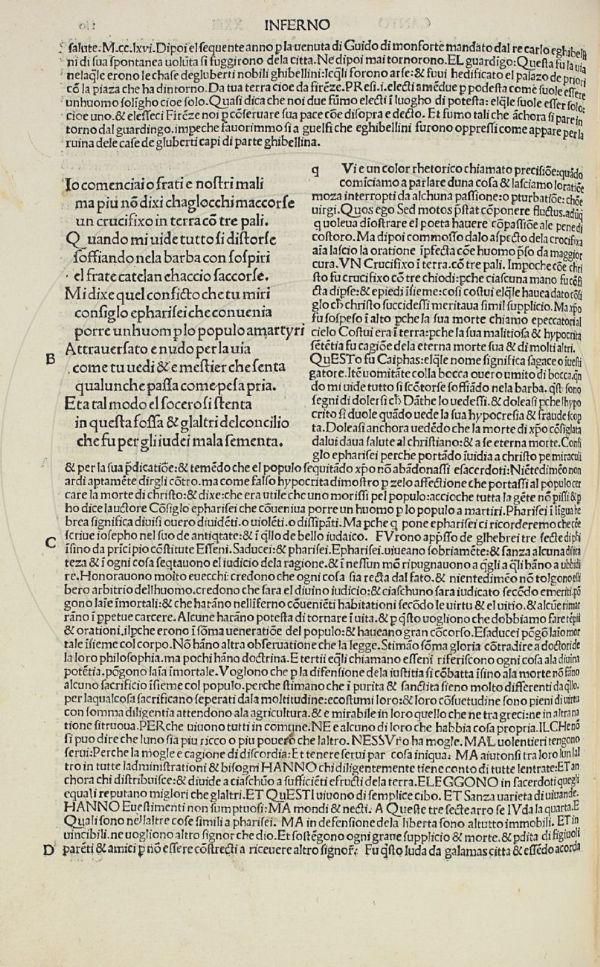 INFERNO
salute. M. cc. lxvi. Dipoi el sequente anno p la uenuta di Guido di monforte mandato dal re carlo eghibelli
ni di sua spontanea uoluta si fuggirono della citta. Ne dipoi mai tornorono. EL guardigo: Questa fu la uia
nelaqle erono le chase degluberti nobili ghibellini: leqli forono arse: & fuui hedificato el palazo de priori
cō la piaza che ha dintorno. Da tua terra cioe da firēze. PResi. i. electi amēdue p podesta come suole essere
unhuomo solīgho cioe solo. Quasi dica che noi due fūmo electi ī luogho di potesta: elqle suole esser solo:
cioe uno. & elesseci Firēze noi p cōseruare sua pace cōe disopra e decto. Et fumo tali che āchora si pare in
torno dal guardingo. impeche fauorimmo si a guelfi che eghibellini furono oppressi come appare per la
ruina dele case de gluberti capi di parte ghibellina.
Io comenciai o frati e nostri mali
ma piu nō dixi chaglocchi maccorse
un crucifixo in terra cō tre pali.
Quando mi uide tutto si distorse
soffiando nela barba con sospiri
el frate catelan chaccio saccorse.
Mi dixe quel confīcto che tu miri
consiglo epharisei che conuenia
porre un huom p lo populo a martyri
B
Attrauersato e nudo per la uia
come tu uedi & e mestier che senta
qualunche passa come pesa pria.
Et a tal modo el socero si stenta
in questa fossa & glaltri del concilio
che fu per gli iudei mala sementa.
q Vi e un color rhetorico chiamato precisiōne: quādo
comiciamo a parlare duna cosa & lasciamo loratiōe
moza interropti da alchuna passione: o pturbatiōe: chōe
uirgi. Quos ego Sed motos pstat cōponere fluctus. adūq
quoleua diostrare el poeta hauere cōpassiōe ale pene di
costoro. Ma dipoi commosso dalo aspecto dela crocifixa
aīa lascio la oratione īpfecta cōe huomo pso da maggior
cura. VN Crucifixo ī terra. cō tre pali. Impoche cōe chri
sto fu crucifixo cō tre chiodi: pche ciascuna mano fu cōfi
cta dipse: & epiedi īsieme: cosi costui elqle hauea dato cōsi
glo ch christo succidessi meritaua simil supplicio. Ma xpo
fu sospeso ī alto pche la sua morte chiamo epeccatori al
cielo Costui era ī terra: pche la sua malitiosa & hypocrita
sētētia fu cagiōe della eterna morte sua & di molti altri.
QuESTo fu Caiphas: elqle nome significa sagace o īuesti
gatore. Itē uomitāte colla bocca ouero umito di bocca. qn
do mi uide tutto si scōtorse soffiādo nela barba. qsti sono
segni di dolersi ch Dāthe lo uedessi. & doleasi pche lhypo
crito si duole quādo uede la sua hypocresia & fraude scop
ta. Doleasi anchora uedēdo che la morte di xpo cōsiglata
da lui daua salute al christiano: & a se eterna morte. Consi
glo epharisei perche portādo īuidia a christo pe miraculi
& per la sua pdicatiōne: & temēdo che el populo sequitādo xpo nō abādonassi esacerdoti: Niētedimēo non
ardi aptamēte dirgli cōtro. ma come falso hypocrito dimostro p zelo affectiōne che portassi al populo cer
care la morte di christo: & dixe: che era utile che uno morissi pel populo: accioche tutta la gēte nō pissi & p
ho dice lauctore Cōsiglo epharisei che cōueniua porre un huomo p lo populo a martiri. Pharisei ī ligua he
brea significa diuisi ouero diuidēti. o uiolēti. o dissipāti. Ma pche q pone epharisei ci ricorderemo che cōe
C
scriue iosepho nel suo de antiqtate: & ī qllo de bello iudaico. FVrono appsso de glhebrei tre secte di phi
īsino da prīcipio cōstitute Esseni. Saducei: & pharisei. Epharisei. uiueano sobriamēte: & sanza alcuna dilica
teza & ī ogni cosa seqtauono el iudicio dela ragione. & ī nessun mō ripugnauono a qgli a qli hāno a ubbidi
re. Honorauono molto euecchi: credono che ogni cosa sia recta dal fato. & nientedimēo nō tolgono el li
bero arbitrio dellhuomo. credono che sara el diuino iudicio: & ciaschuno sara iudicato secōdo emeriti. pō
gono laīe īmortali: & che harāno nellīferno cōueniēti habitationi secōdo le uirtu & el uitio. & alcūe rimar
ranno ī ppetue carcere. Alcune harāno potesta di tornare ī uita. & p qsto uogliono che dobbiamo fare tēpii
& orationi. ilpche erono ī sōma ueneratiōe del populo: & haueano gran cōcorso. Esaducei pōgō laīo mor
tale īsieme col corpo. Nō hāno altra obseruatione che la legge. Stimāo sōma gloria cōtradire a doctori de
la loro philosophia. ma pochi hāno doctrina. Et tertii eqli chiamano esseni riferiscono ogni cosa ala diuina
potētia. pōgono laīa īmortale. Voglono che p la difensione dela iustitia si cōbatta īsino ala morte nō fāno
alcuno sacrificio īsieme col populo. perche stimano che ī purita & sanctita sieno molto differenti da qllo.
per laqualcosa sacrificano seperati dala moltitudine: ecostumi loro: & loro cōsuetudine sono pieni di uirtu
con somma diligentia attendono ala agricultura. & e mirabile in loro quello che ne tra greci: ne in altra na
tione si truoua. PERche uiuono tutti in comune. NE e alcuno di loro che habbia cosa propria. ILCHe nō
si puo dire che luno sia piu ricco o piu pouero che laltro. NESSVno ha mogle. MAL uolentieri tengono
serui: Perche la mogle e cagione di discordia: Et tenere serui par cosa iniqua: MA aiutonsi tra loro lun lal
tro in tutte ladministrationi & bisogni HANNO chi diligentemente tiene conto di tutte lentrate: ET an
chora chi distribuisce: & diuide a ciaschūo a sufficiēti efructi dela terra. ELEGGONO in sacerdoti quegli
equali reputano miglori che glaltri. ET QuESTI uiuono di semplice cibo. ET Sanza uarieta di uiuande.
HANNO Euestimenti non sumptuosi: MA mondi & necti. A Queste tre secte arrose IVda la quarta. E
Quali sono nellaltre cose simili a pharisei. MA in defensione dela liberta sono altutto immobili. ET in
uincibili. ne uogliono altro signor che dio. Et sostēgono ogni graue supplicio & morte. & pdita di figiuoli
D
parēti & amici p nō essere cōstrecti a riceuere altro signor. Fu qsto Iuda da galamas citta & essēdo acorda